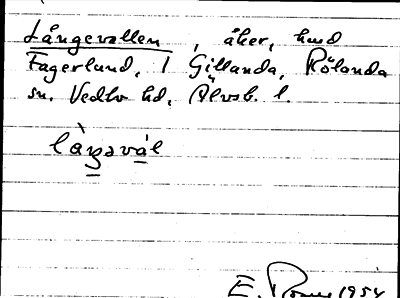 Långevallen, åker, hmd
Fagerlund, 1 Gillanda, Rölanda
sn. Vedbo hd, Älvsb. l.
E. 1954